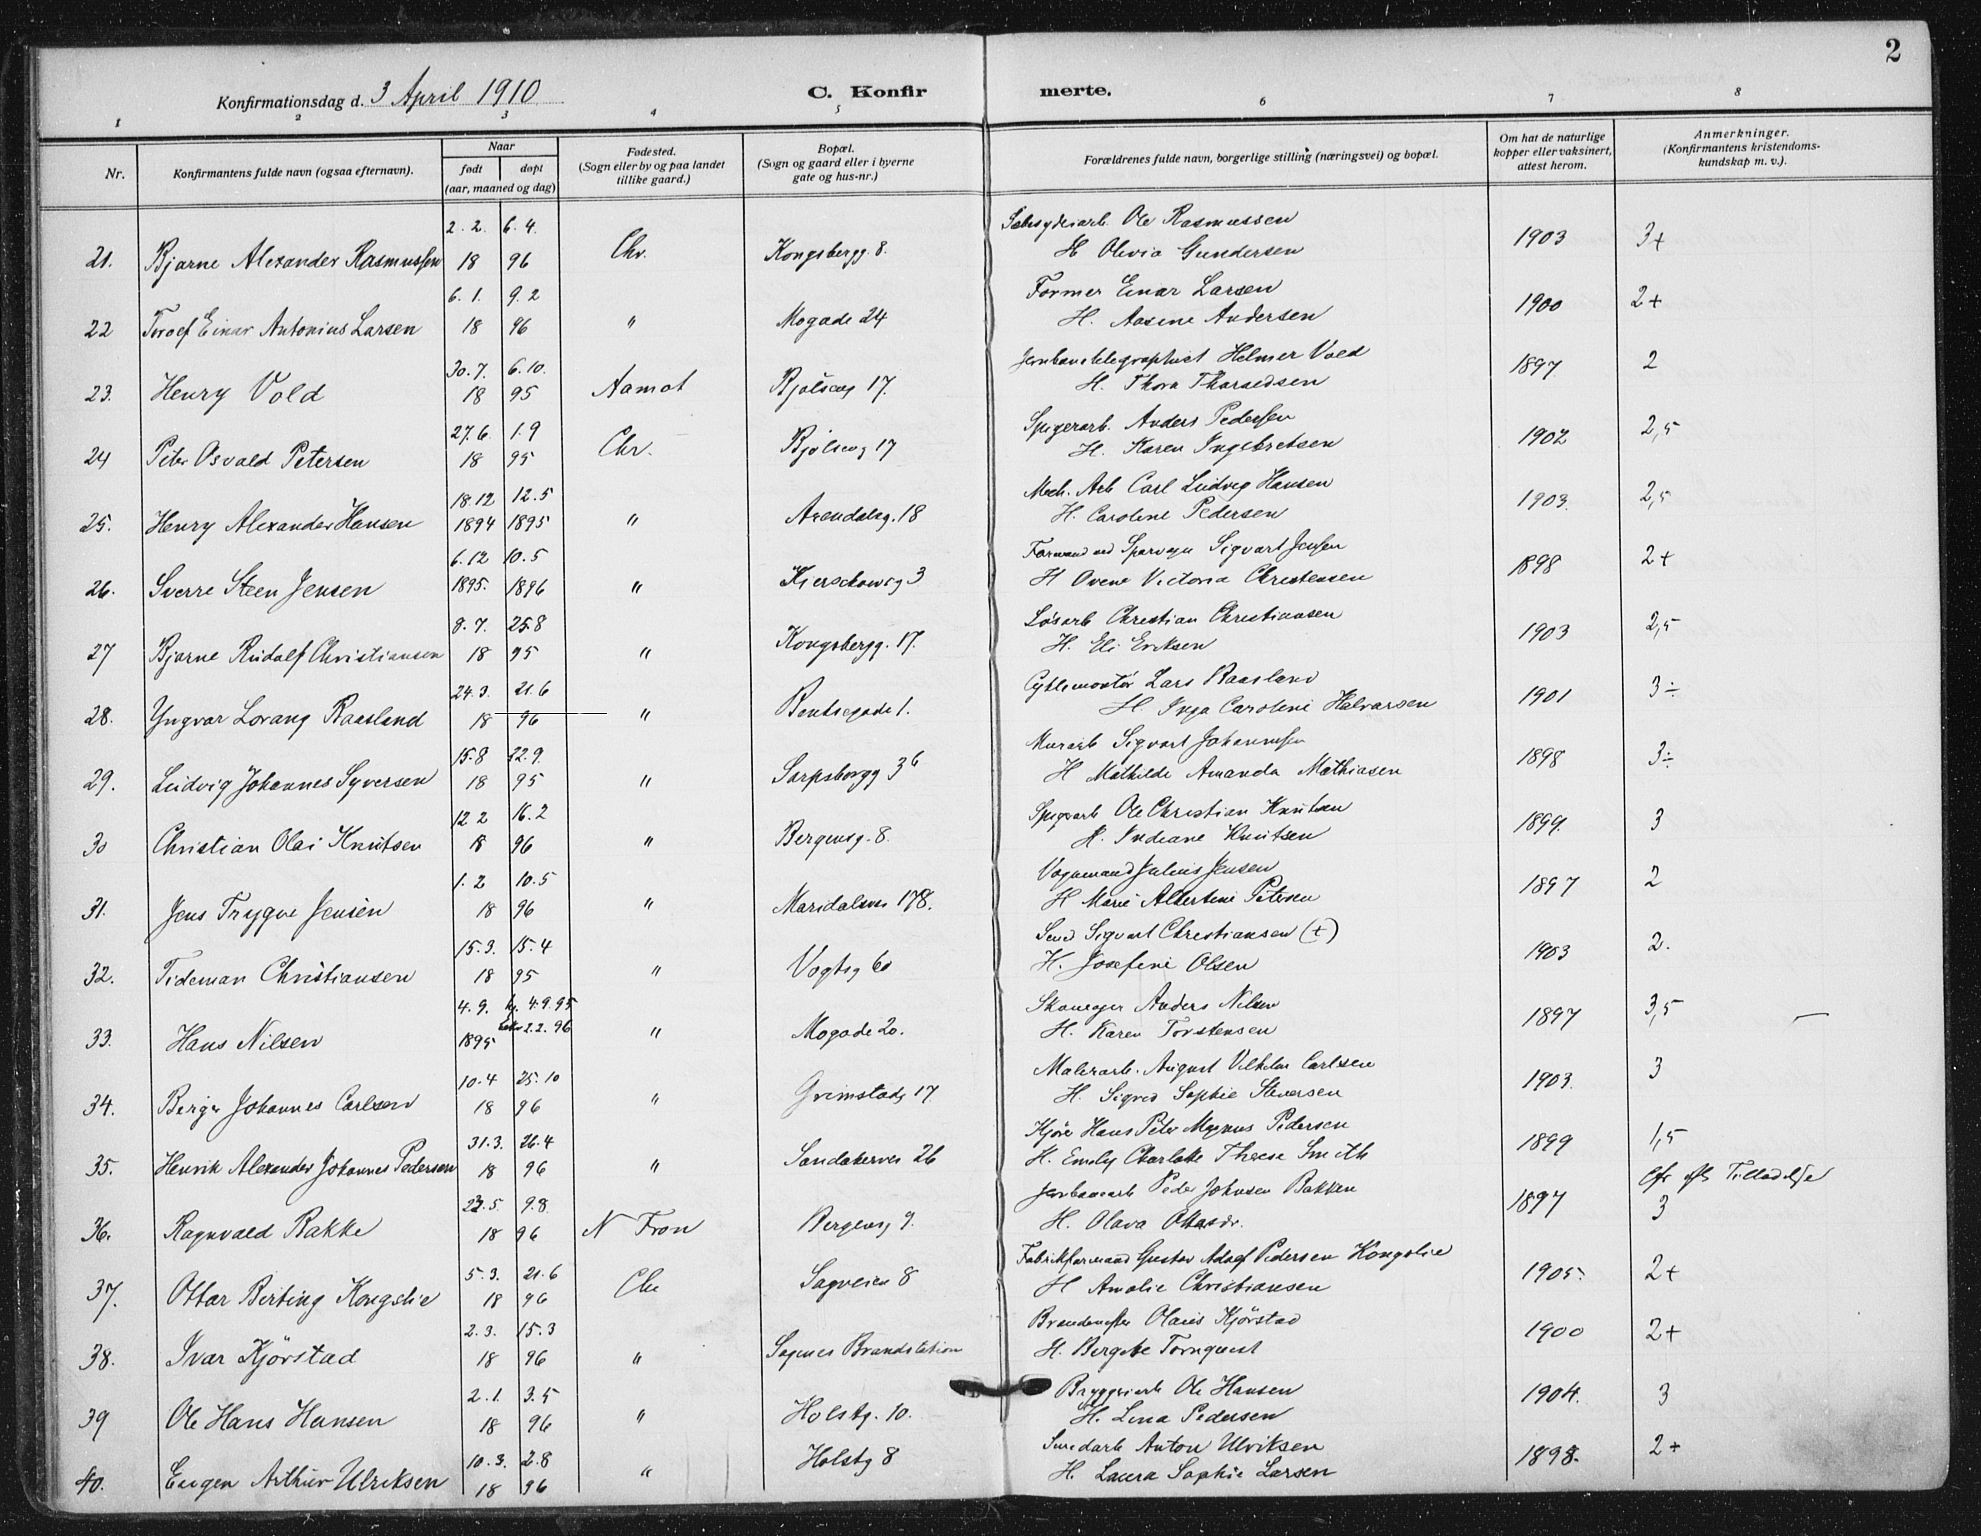 2
Konfirmationsdag d. 3 April 1910
C. Konfirmerte.
1 2 3 4 5 6 7 8
Nr.
Konfirmantens fulde navn (ogsaa efternavn).
Naar
født døpt
(aar, maaned og dag)
Fødested.
(Sogn eller by og paa landet
tillike gaard.)
Bopæl.
(Sogn og gaard eller i byerne
gate og hus-nr.)
Forældrenes fulde navn, borgerlige stilling (næringsvei) og bopæl.
Om hat de naturlige
kopper eller vaksinert,
attest herom.
Anmerkninger.
(Konfirmantens kristendoms-
kundskap m. v.).
2. 2. 6. 4. Ole Rasmussen
21. Bjarne Alexander Rasmussen 18 96 Chr. Kongsbergg. 8. H Olivia Gundersen 1903 3+
6. 1. 9. 2 Former Einar Larsen
22 Einar Antonius Larsen 18 96 " Mogade 24 H. Aasine Andersen 1900 2+
30. 7. 6. 10. Jernbanetelegraphist Helmer Vold
23. Henry Vold 18 95 Aamot Bjølseng 17. H. Thora 1897 2
27. 6. 1. 9 Spigerarb. Anders Pedersen
24 Peter Osvald Petersen 18 95 Chr. Bjølseng 17 H. Karen Ingebretsen 1902 2,5
18. 12 12. 5 Mek. Arb Carl Ludvig Hansen
25. Henry Alexander Hansen 1894 1895 " Arendalsg. 18 H. Caroline Pedersen 1903 2,5
6. 12 10. 5 Formand ved Sporveyn Sigvart Jensen
26. Sverre Steen Jensen 1895. 1896 " Kierschowsg 3 H Ovene Victoria Christensen 1898 2+
8. 7. 25. 8 Løsarb Christian Christiansen
27 Bjarne Rudolf Christiansen 18 95 " Kongsbergg. 17. H. Eli Eriksen 1903 2,5
24. 3. 21. 6 Cyklemontør Lars Raasland
28. Yngvar Lorang Raasland 18 96 " Bentsegade 1. H Inga Caroline Halvorsen 1901 3÷
15. 8 22. 9. Murarb Sigvart Johannesen
29. Ludvig Johannes Syversen 18 95 " Sarpsborgg 36 H Mathilde Amanda Mathiasen 1898 3÷
12 2 16. 2 Ole Christian Knutsen
30 Christian Olai Knutsen 18 96 " Bergensg. 8. H. Indiane Knutsen 1899. 3
1. 2 10. 5 Vognmand Julius Jensen
31. Jens Trygve Jensen 18 96 " Maridalsvei 178. H Marie Albertine Petersen 1897 2
15. 3. 15. 4 Sigvart Christiansen (+)
32. Tideman Christiansen 18 95 " Vogtsg 60 H. Josefine Olsen 1903 2.
4. 9. 4. 9. 95 Anders Nilsen
33. Hans Nilsen 1895 2. 2. 96 " Mogade 20. H. Karen Torstensen 1897 3,5 —
10. 4 25. 10 Malerarb. August Vilhelm Carlsen
34. Birger Johannes Carlsen 18 96 " Grimstadg 17 H. Sigrid Sophie 1903. 3
31. 3. 26. 4 Kjører Hans Peter Magnus Pedersen
35. Henrik Alexander Johannes Pedersen 18 96 " Sandakervei 26 H. Emily Charlotte Therese Smith 1899 1,5
23. 5. 9. 8 Jernbanearb Peder Johnsen Bakken Tilladelse
36. Ragnvald Bakke 18 96 N Fron Bergensg 9. H. Olava 1897 3
5. 3. 21. 6 Fabrikformand Gustav Adolf Pedersen Kongslie
37. Ottar Birting Kongslie 18 96 Chr Sagveien 8 H Amalie Christiansen 1905. 2+
2. 3. 15. 3 Brandmester Olaus Kjørstad
38. Ivar Kjørstad 18 96 " Sagenes Brandstation H. Bergitte Tørnqvist 1900 2+
2. 1. 3. 5 Bryggeriarb Ole Hansen
39 Ole Hans Hansen 18 96 " Holstg. 10. H. Lina Pedersen 1904. 3
10. 3. 2. 8 Smedarb Anton Ulriksen
40. Eugen Arthur Ulriksen 18 96 " Holstg 8 H. Laura Sophie Larsen 1898. 2+